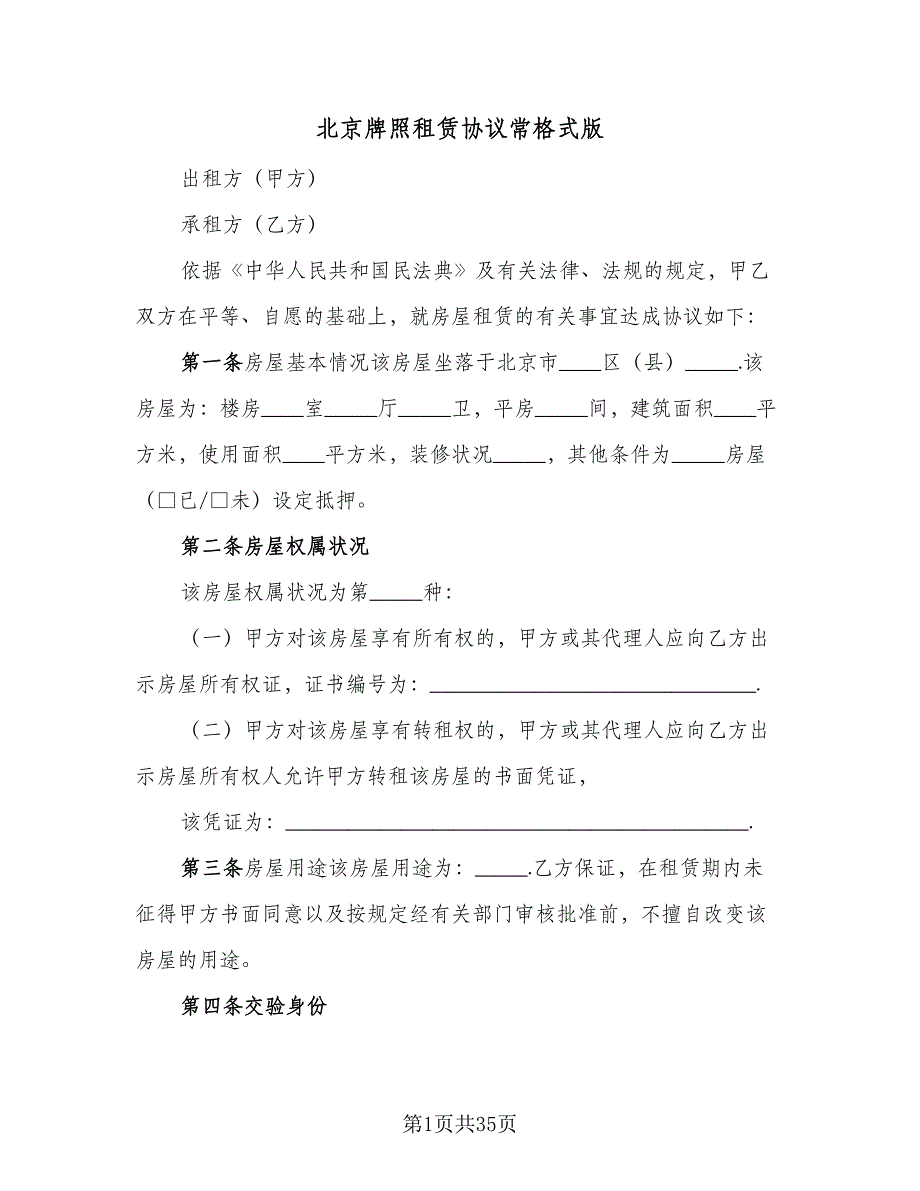 北京牌照租赁协议常格式版
出租方（甲方）
承租方（乙方）
依据《中华人民共和国民法典》及有关法律、法规的规定，甲乙
双方在平等、自愿的基础上，就房屋租赁的有关事宜达成协议如下：
第一条房屋基本情况该房屋坐落于北京市____区（县）_____.该
房屋为：楼房____室_____厅_____卫，平房_____间，建筑面积____平
方米，使用面积____平方米，装修状况_____，其他条件为_____房屋
（□已/□未）设定抵押。
第二条房屋权属状况
该房屋权属状况为第_____种：
（一）甲方对该房屋享有所有权的，甲方或其代理人应向乙方出
示房屋所有权证，证书编号为：_______________________________.
（二）甲方对该房屋享有转租权的，甲方或其代理人应向乙方出
示房屋所有权人允许甲方转租该房屋的书面凭证，
该凭证为：____________________________________________.
第三条房屋用途该房屋用途为：_____.乙方保证，在租赁期内未
征得甲方书面同意以及按规定经有关部门审核批准前，不擅自改变该
房屋的用途。
第四条交验身份
第1页共35页